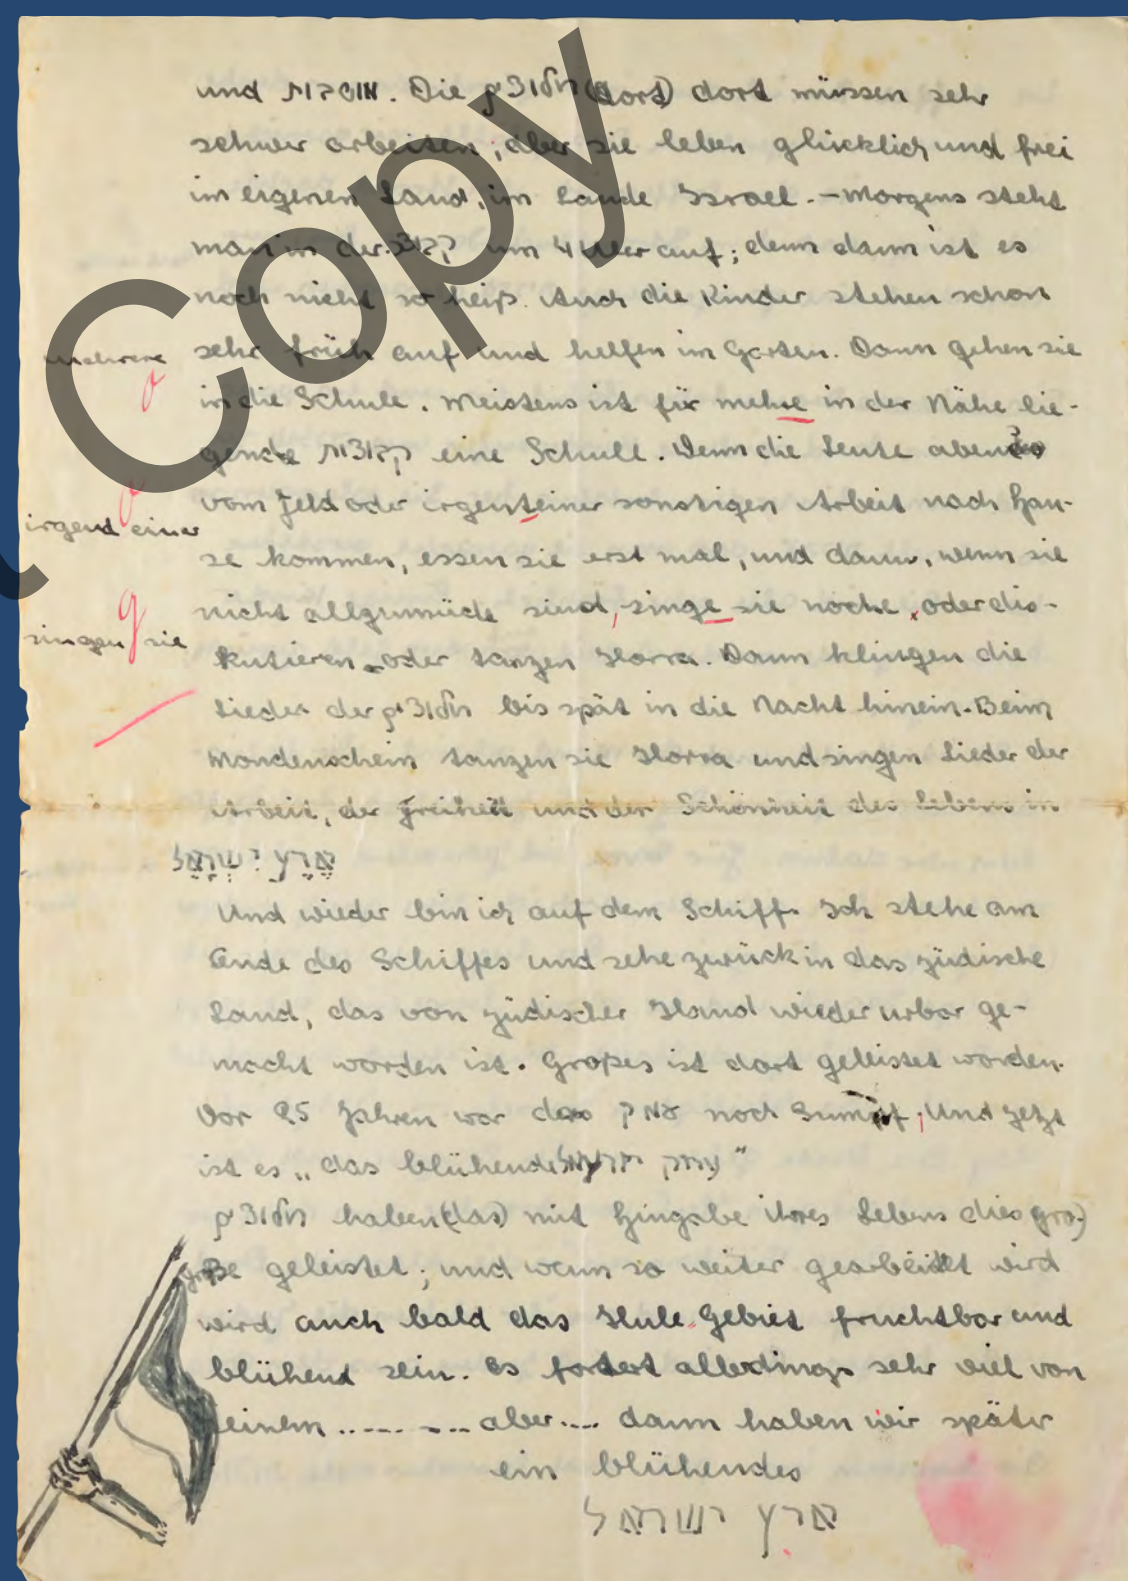 und חיפה. Die חלוצים (dort) dort müssen sehr
schwer arbeiten; aber sie leben glücklich und frei
im eigenen Land, im Lande Israel. – Morgens steht
man in der קבוצה um 4 Uhr auf; denn dann ist es
noch nicht so heiß. Auch die Kinder stehen schon
mehrere
sehr früh auf und helfen im Garten. Dann gehen sie
in die Schule. Meistens ist für mehre in der Nähe lie-
gende קבוצות eine Schule. Wenn die Leute abends
irgend einer
vom Feld oder irgenteiner sonstigen Arbeit nach Hau-
se kommen, essen sie erst mal, und dann, wenn sie
singen sie
nicht allzumüde sind, singe sie noch, oder dis-
kutieren oder tanzen Horra. Dann klingen die
Lieder der חלוצים bis spät in die Nacht hinein. Beim
Mondenschein tanzen sie Horra und singen Lieder der
Arbeit, der Freiheit und der Schönheit des Lebens in
אֶרֶץ יִשְׂרָאֵל
Und wieder bin ich auf dem Schiff. Ich stehe am
Ende des Schiffes und sehe zurück in das jüdische
Land, das von jüdischer Hand wieder urbar ge-
macht worden ist. Großes ist dort geleistet worden.
Vor 25 Jahren war das עמק noch Sumpf, Und jetzt
ist es „das blühende עמק יזרעאל"
חלוצים haben (das) mit Hingabe ihres Lebens dies gro-)
große geleistet; und wenn so weiter gearbeitet wird
wird auch bald das Hule-Gebiet fruchtbar und
blühend sein. Es fortert allerdings sehr viel von
einem ........ aber.... dann haben wir später
ein blühendes
ארץ ישראל
Copy